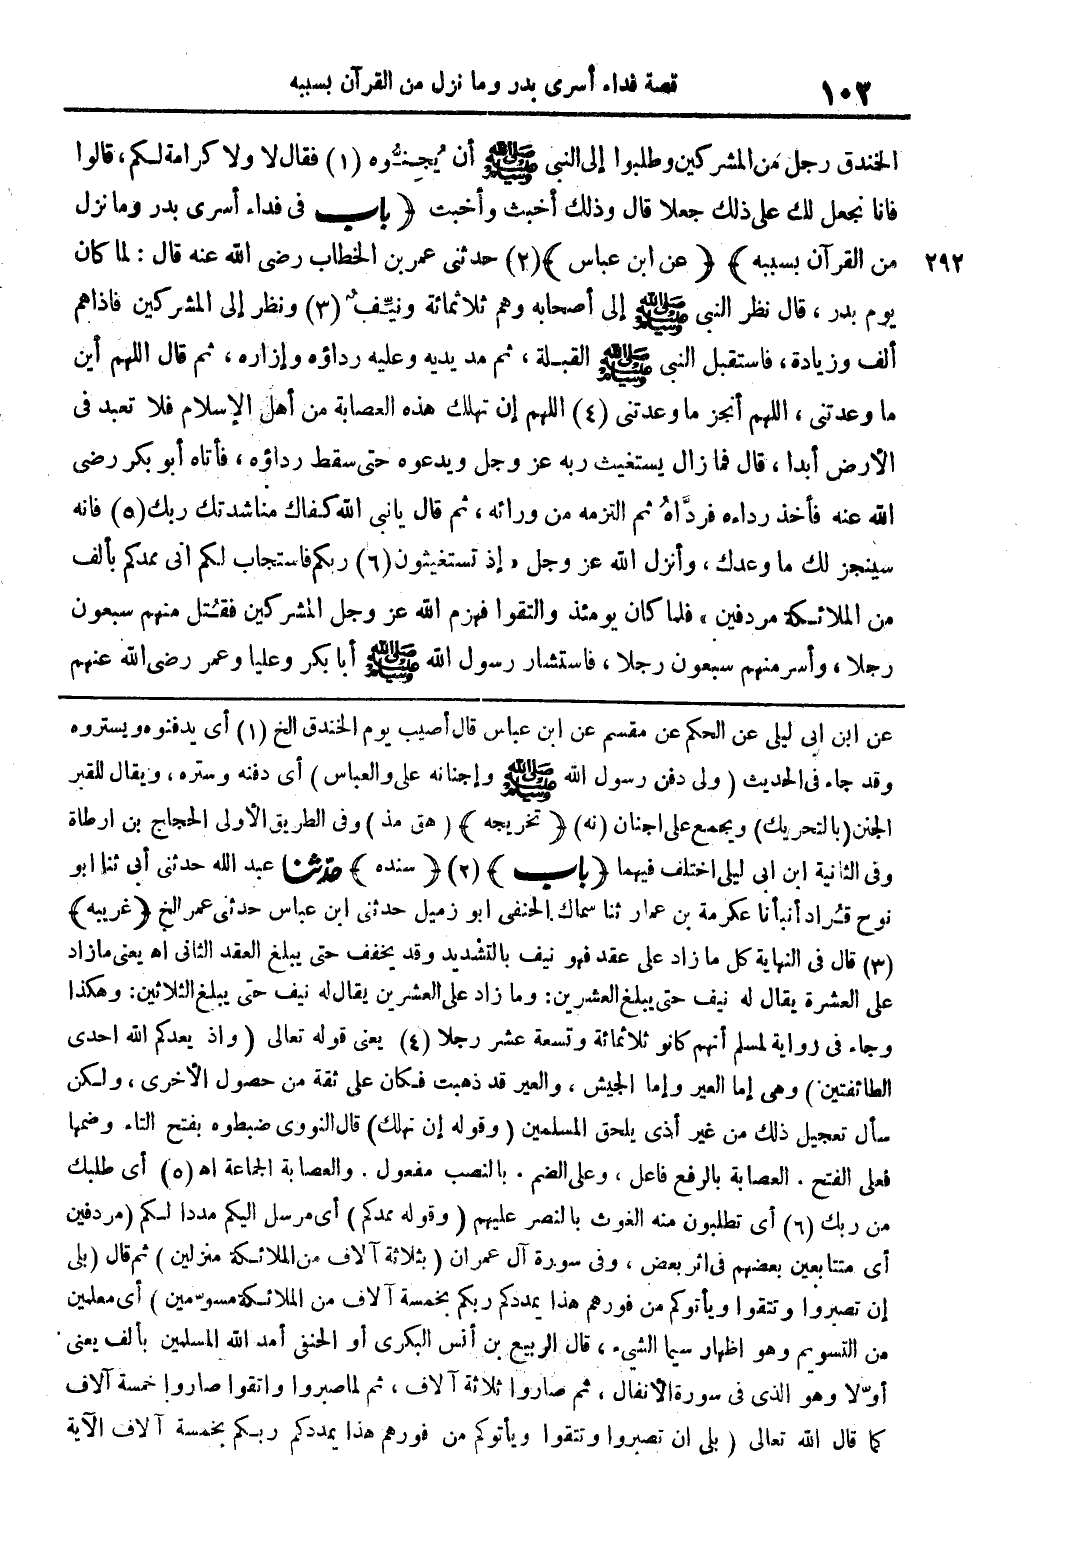 ١٠٣ قصة فداء أسرى بدر وما نزل من القرآن بسببه
الخندق رجل من المشركين وطلبوا إلى النبي ﷺ أن يُجِنُّوه (١) فقال لا ولا كرامة لكم، قالوا
فانا نجعل لك على ذلك جعلا قال وذلك أخبث وأخبث ﴿ باب فى فداء أسرى بدر وما نزل
من القرآن بسببه ﴾ ﴿ عن ابن عباس ﴾(٢) حدثنى عمر بن الخطاب رضى الله عنه قال : لما كان ٢٩٢
يوم بدر ، قال نظر النبى ﷺ إلى أصحابه وهم ثلاثمائة ونيّف (٣) ونظر إلى المشركين فاذاهم
ألف وزيادة ، فاستقبل النبى ﷺ القبلة ، ثم مد يديه وعليه رداؤه وإزاره ، ثم قال اللهم أين
ما وعدتنى ، اللهم أنجز ما وعدتنى (٤) اللهم إن تهلك هذه العصابة من أهل الإسلام فلا تعبد فى
الأرض أبدا ، قال فما زال يستغيث ربه عز وجل ويدعوه حتى سقط رداؤه ، فأتاه أبو بكر رضى
الله عنه فأخذ رداءه فردَّاهُ ثم التزمه من ورائه ، ثم قال يانبى الله كفاك مناشدتك ربك(٥) فانه
سينجز لك ما وعدك ، وأنزل الله عز وجل « إذ تستغيثون(٦) ربكم فاستجاب لكم انى ممدكم بألف
من الملائكة مردفين ، فلما كان يومئذ والتقوا فهزم الله عز وجل المشركين فقُتل منهم سبعون
رجلا ، وأسر منهم سبعون رجلا ، فاستشار رسول الله ﷺ أبا بكر وعليا وعمر رضى الله عنهم
عن ابن ابى ليلى عن الحكم عن مقسم عن ابن عباس قال أصيب يوم الخندق الخ (١) أى يدفنوه ويستروه
وقد جاء فى الحديث ( ولى دفن رسول الله ﷺ وإجنانه على والعباس ) أى دفنه وستره ، ويقال للقبر
الجنن (بالتحريك) ويجمع على اجنان (نه) ﴿ تخريجه ﴾ ( هق مذ ) وفى الطريق الأولى الحجاج بن ارطاة
وفى الثانية ابن ابى ليلى اختلف فيهما ﴿ باب ﴾ (٢) ﴿ سنده ﴾ حدثنا عبد الله حدثنى أبى ثنا ابو
نوح قُراد أنبأنا عكرمة بن عمار ثنا سماك الحنفى ابو زميل حدثنى ابن عباس حدثنى عمر الخ ﴿ غريبه ﴾
(٣) قال فى النهاية كل ما زاد على عقد فهو نيف بالتشديد وقد يخفف حتى يبلغ العقد الثانى اه يعنى مازاد
على العشرة يقال له نيف حتى يبلغ العشرين: وما زاد على العشرين يقال له نيف حتى يبلغ الثلاثين: وهكذا
وجاء فى رواية لمسلم أنهم كانو ثلاثمائة وتسعة عشر رجلا (٤) يعنى قوله تعالى ( واذ يعدكم الله احدى
الطائفتين ) وهى إما العير وإما الجيش ، والعير قد ذهبت فكان على ثقة من حصول الأخرى ، ولكن
سأل تعجيل ذلك من غير أذى يلحق المسلمين ( وقوله إن تهلك) قال النووى ضبطوه بفتح التاء وضمها
فعلى الفتح . العصابة بالرفع فاعل ، وعلى الضم . بالنصب مفعول . والعصابة الجماعة اه (٥) أى طلبك
من ربك (٦) أى تطلبون منه الغوث بالنصر عليهم ( وقوله ممدكم ) أى مرسل اليكم مددا لكم (مردفين
أى متتابعين بعضهم فى اثر بعض ، وفى سورة آل عمران ( بثلاثة آلاف من الملائكة منزلين ) ثم قال (بلى
إن تصبروا وتتقوا ويأتوكم من فورهم هذا يمددكم ربكم بخمسة آلاف من الملائكة مسوّمين ) أى معلمين
من التسويم وهو اظهار سيما الشىء ، قال الربيع بن أنس البكرى أو الحنفى أمد الله المسلمين بألف يعنى
أوّلا وهو الذى فى سورة الأنفال ، ثم صاروا ثلاثة آلاف ، ثم لما صبروا واتقوا صاروا خمسة آلاف
كما قال الله تعالى ( بلى ان تصبروا وتتقوا ويأتوكم من فورهم هذا يمددكم ربكم بخمسة آلاف الآية